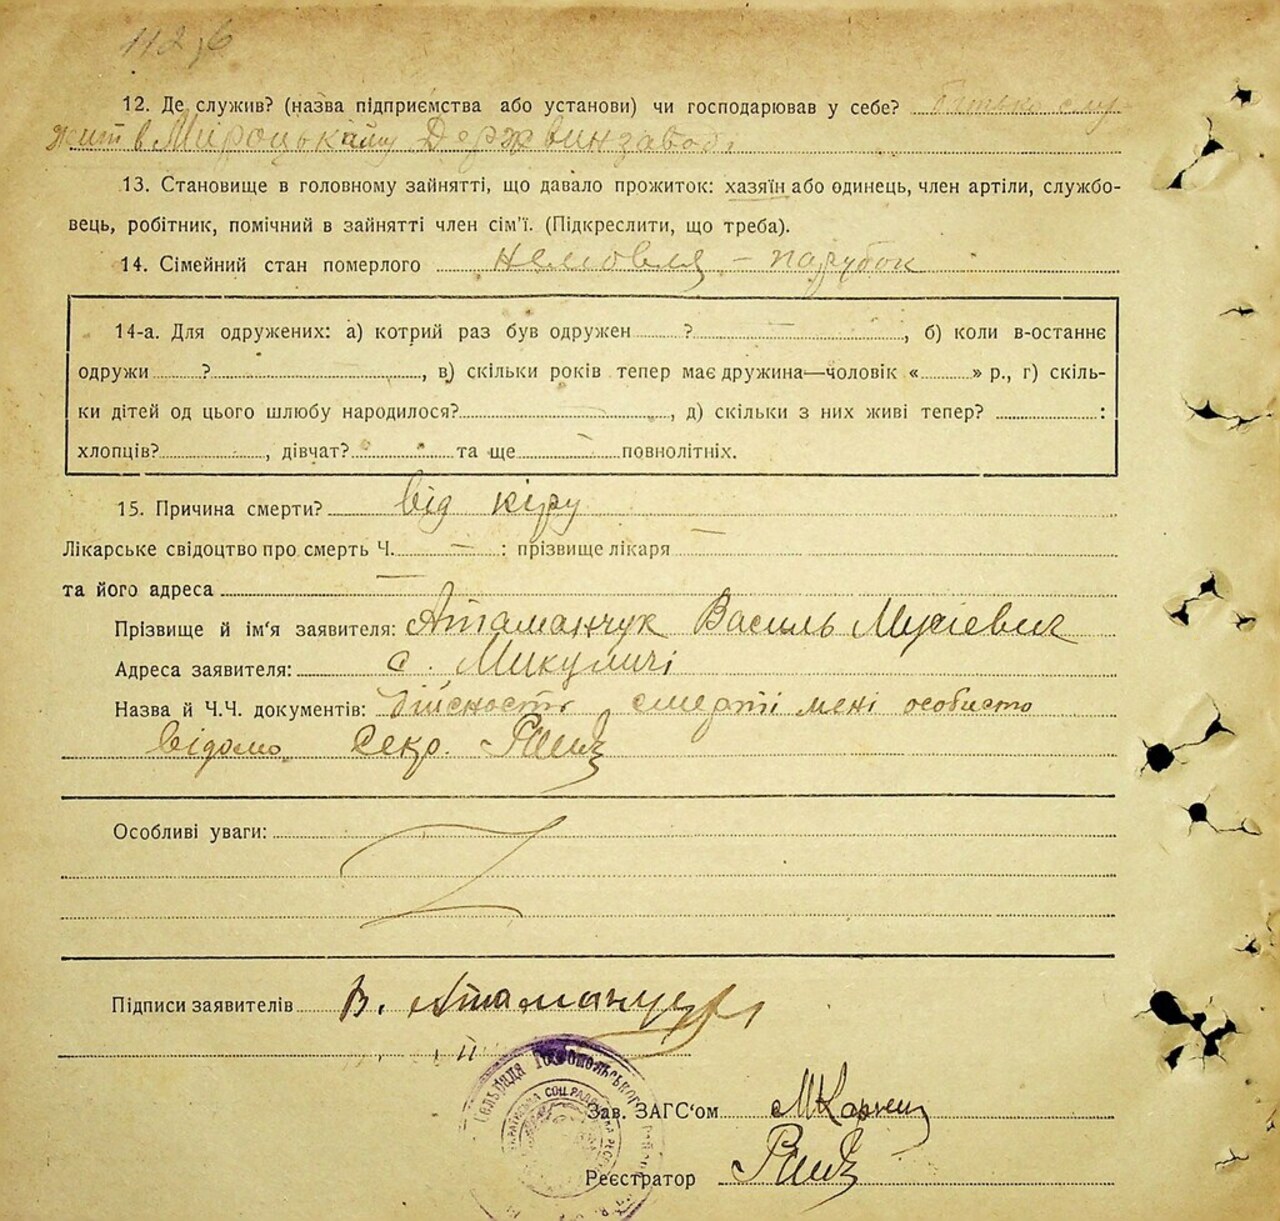 112
12. Де служив? (назва підприємства або установи) чи господарював у себе? Батько слу-
жит в Мироцькому Держвинзаводі
13. Становище в головному зайнятті, що давало прожиток: хазяїн або одинець, член артіли, службо-
вець, робітник, помічний в зайнятті член сім'ї. (Підкреслити, що треба).
14. Сімейний стан померлого немовля – парубок
14-а. Для одружених: а) котрий раз був одружен ? , б) коли в-останнє
одружи ? , в) скільки років тепер має дружина—чоловік « » р., г) скіль-
ки дітей од цього шлюбу народилося? , д) скільки з них живі тепер? :
хлопців? , дівчат? та ще повнолітніх.
15. Причина смерти? від кіру
Лікарське свідоцтво про смерть Ч. — : прізвище лікаря —
та його адреса —
Прізвище й ім'я заявителя: Атаманчук Василь Мусієвич
Адреса заявителя: с. Микуличі
Назва й Ч.Ч. документів: Дійсность смерти мені особисто
відомо Секр.
Особливі уваги:
Підписи заявителів В. Атаманчук
Сельрада
УКРАЇНСЬКА СОЦ. РАД
Зав. ЗАГС'ом
Реєстратор